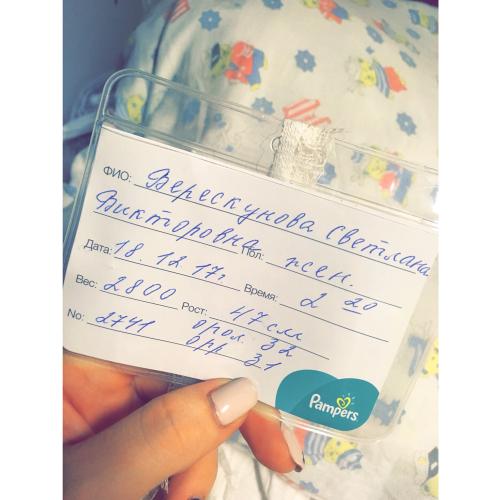 ФИО: Верескунова Светлана
Викторовна Пол: жен.
Дата: 18.12.17г. Время: 2 20
Вес: 2800 Рост: 47см
No: 2741 Oгол. 32
Огр 31
Pampers